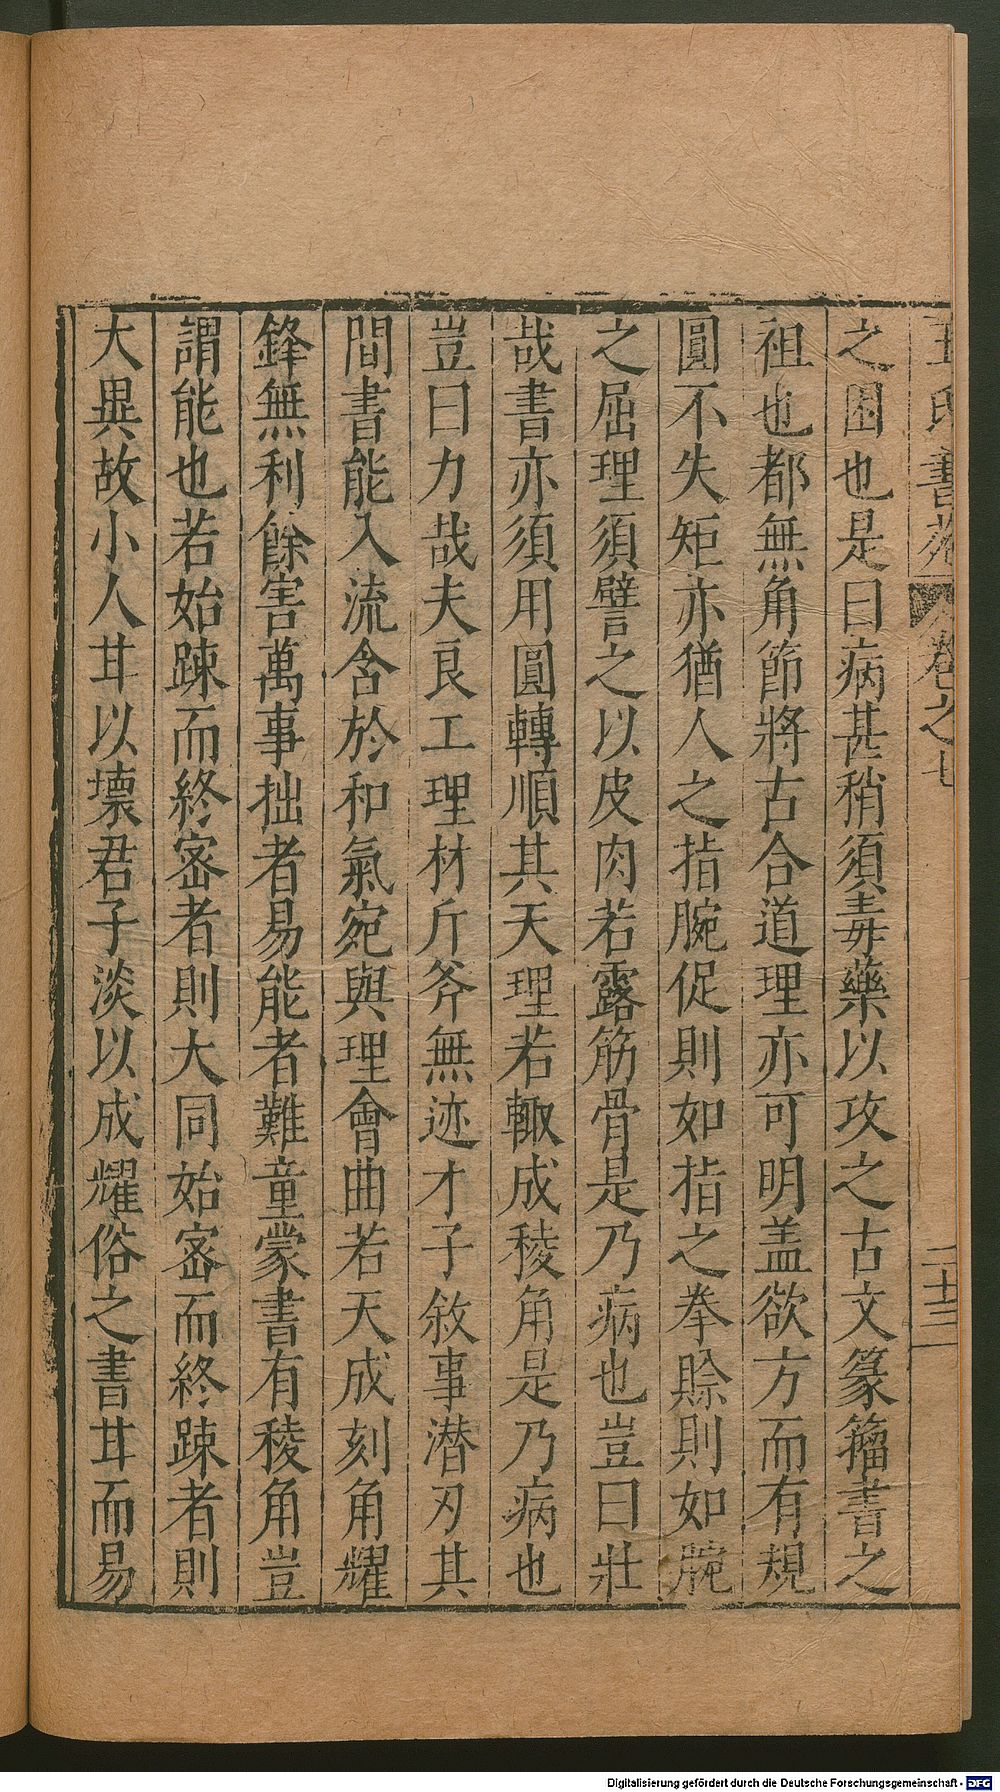 王氏書苑 卷之七 二十三
之困也是曰病甚稍須毒藥以攻之古文篆籀書之
祖也都無角節將古合道理亦可明盖欲方而有規
圓不失矩亦猶人之指腕促則如指之拳賒則如腕
之屈理須譬之以皮肉若露筋骨是乃病也豈曰壯
哉書亦須用圓轉順其天理若輙成稜角是乃病也
豈曰力哉夫良工理材斤斧無迹才子敘事潜刃其
間書能入流含於和氣宛與理會曲若天成刻角耀
鋒無利餘害萬事拙者易能者難童蒙書有稜角豈
謂能也若始踈而終宻者則大同始宻而終踈者則
大異故小人甘以壞君子淡以成耀俗之書甘而易
Digitalisierung gefördert durch die Deutsche Forschungsgemeinschaft - DFG